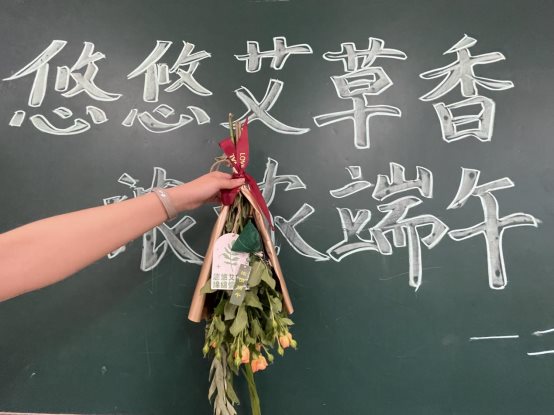 悠悠艾草香
浓浓端午